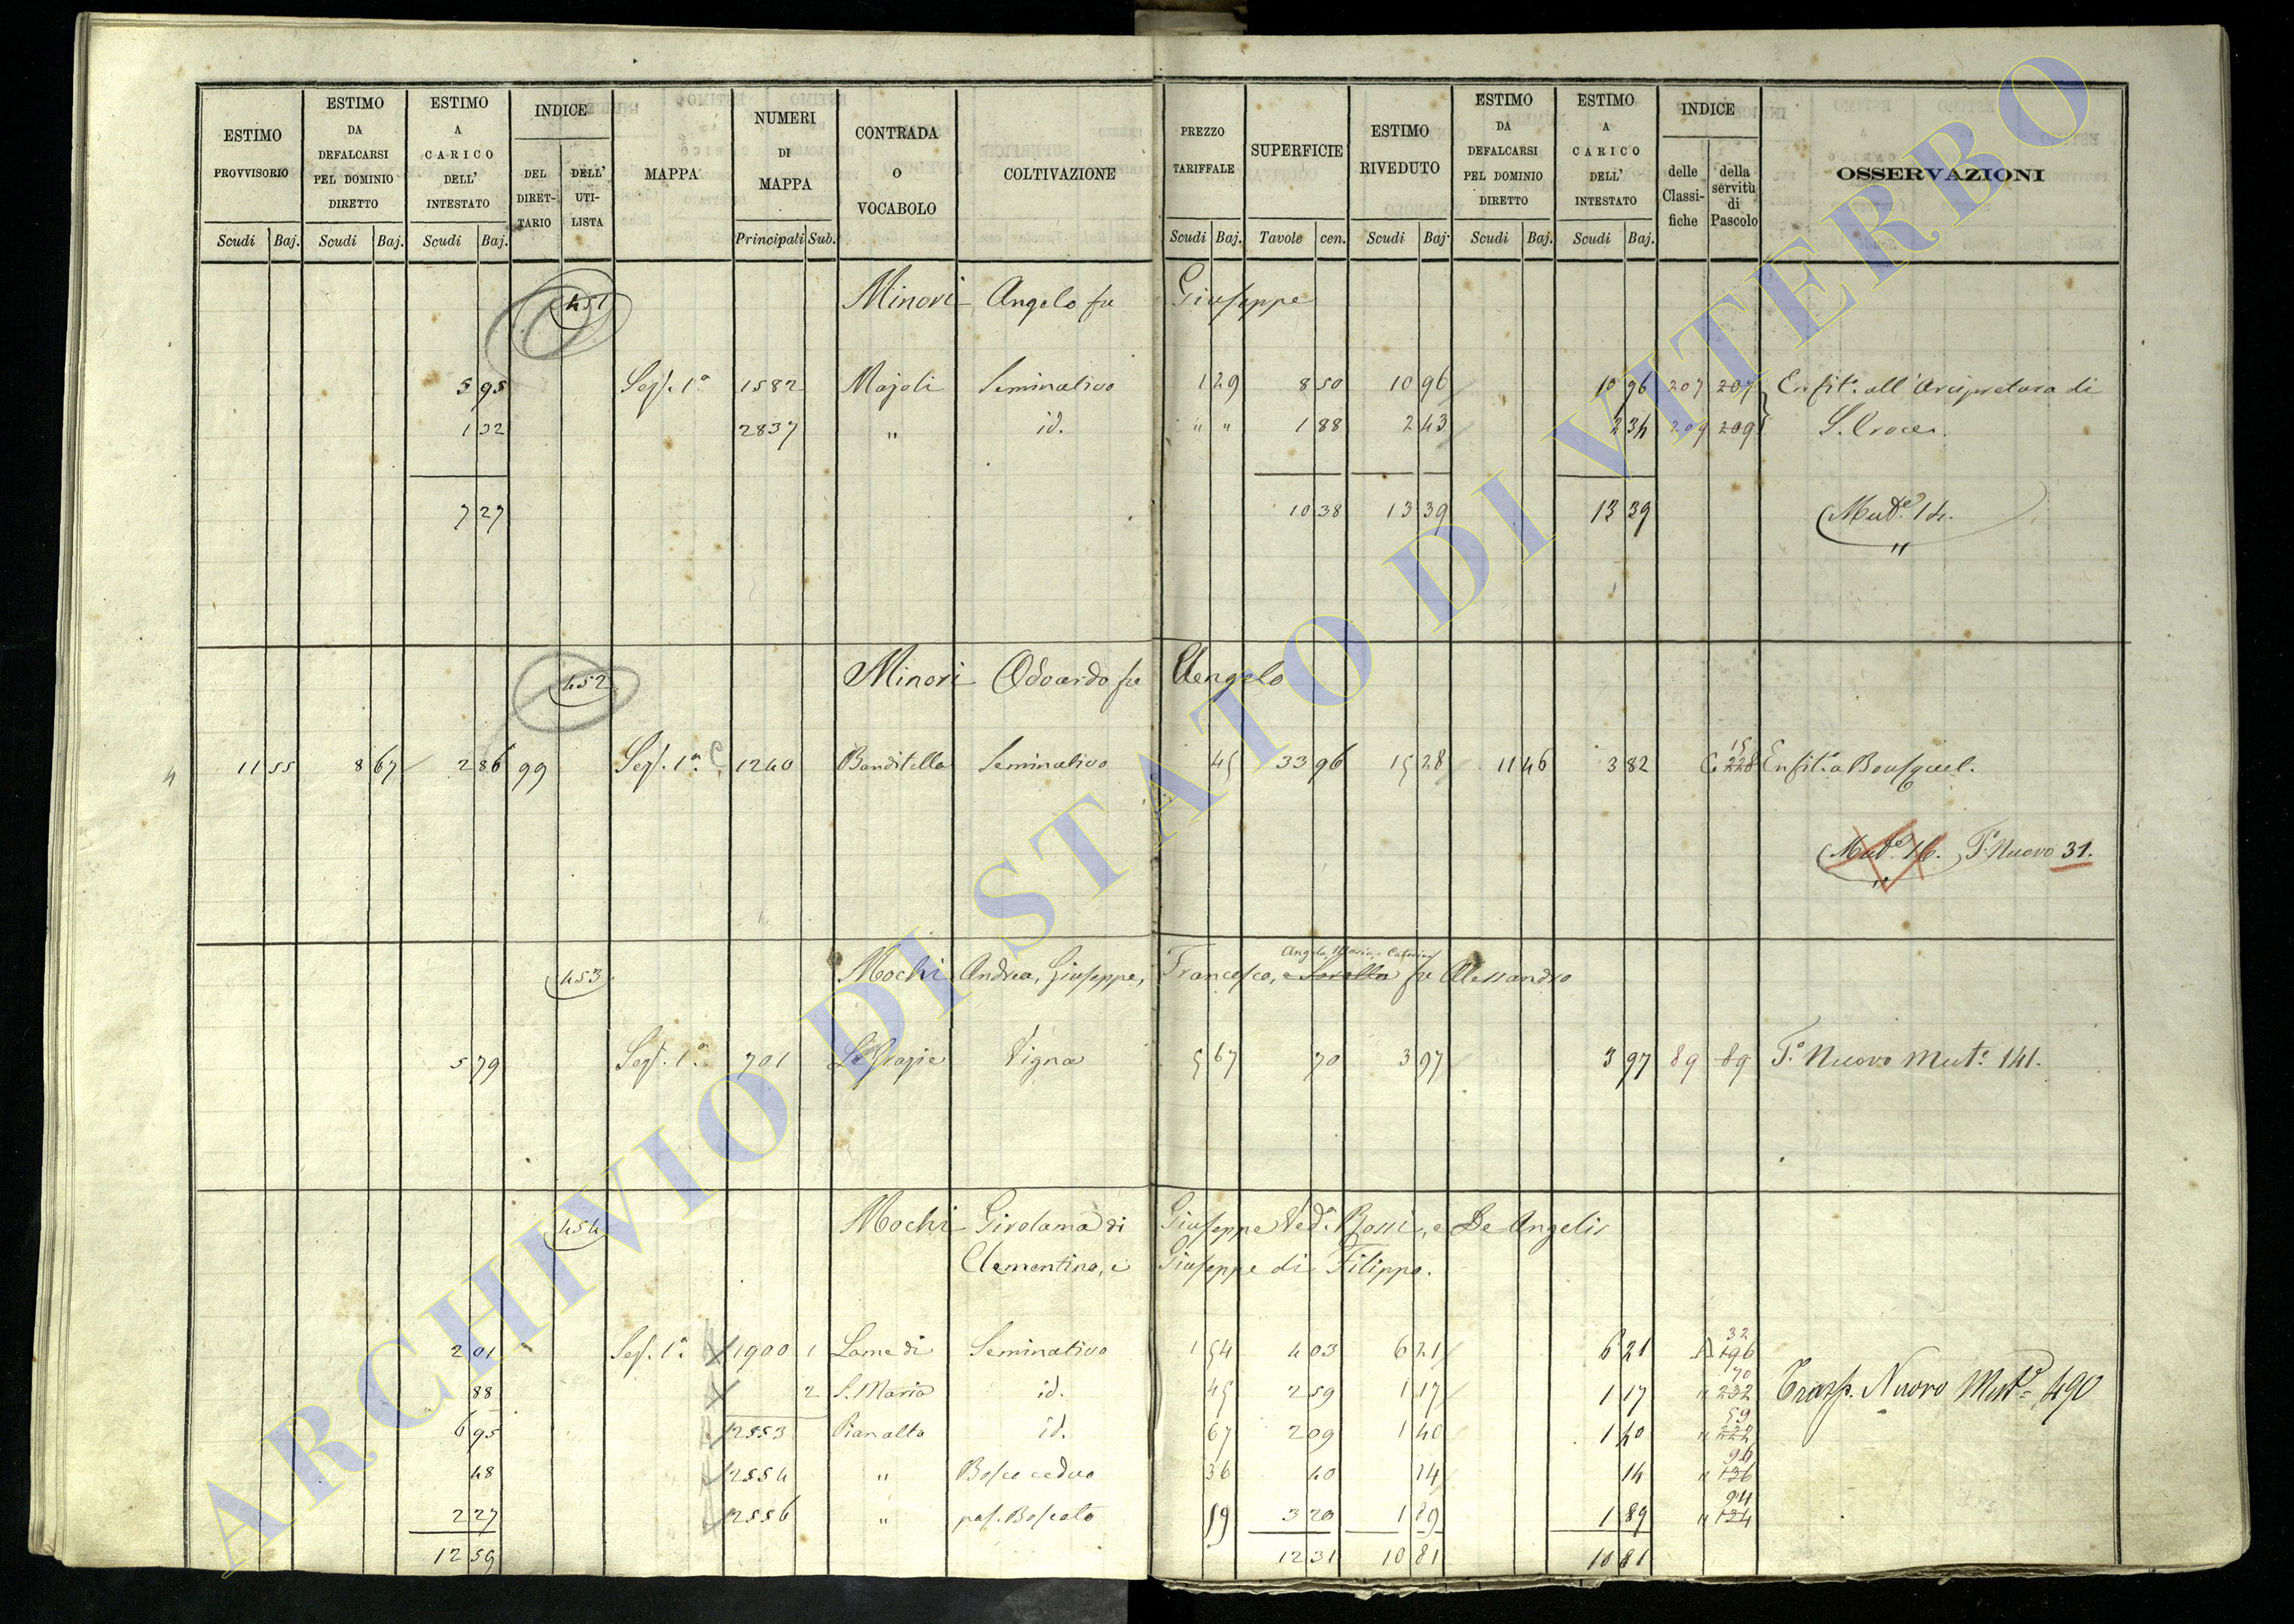 ESTIMO PROVVISORIO Scudi Baj.
ESTIMO DA DEFALCARSI PEL DOMINIO DIRETTO Scudi Baj.
ESTIMO A CARICO DELL' INTESTATO Scudi Baj.
INDICE DEL DIRET-TARIO DELL' UTI-LISTA
MAPPA
NUMERI DI MAPPA Principali Sub.
CONTRADA O VOCABOLO
COLTIVAZIONE
PREZZO TARIFFALE Scudi Baj.
SUPERFICIE Tavole cen.
ESTIMO RIVEDUTO Scudi Baj
ESTIMO DA DEFALCARSI PEL DOMINIO DIRETTO Scudi Baj.
ESTIMO A CARICO DELL' INTESTATO Scudi Baj.
INDICE delle Classi-fiche della servitù di Pascolo
OSSERVAZIONI
451 Minori Angelo fu Giuseppe
5 95 Sez. 1a 1582 Majoli Seminativo 1 29 8 50 10 96 10 96 207 207 Enfit. all'Arcipretura di
1 32 2837 " id. " " 1 88 2 43 2 34 209 209 S. Croce.
7 27 10 38 13 39 13 39 Mut.e 14.
452 Minori Odoardo fu Angelo
11 55 8 67 2 86 99 Sez. 1a C 1240 Banditella Seminativo 45 33 96 15 28 11 46 3 82 C. 15 228 Enfit. a Bousquet.
Mut.e 16. T. Nuovo 31.
453 Mochi Andrea, Giuseppe, Francesco, e Sorella Angela, Maria, Caterina fu Alessandro
5 79 Sez. 1a 701 Le Grazie Vigna 5 67 70 3 97 3 97 89 89 T.o Nuovo Mut.e 141.
454 Mochi Girolama di Giuseppe Ved.a Rossi, e De Angelis
Clementina, e Giuseppe di Filippo.
2 01 Sez. 1a 1900 1 Lame di Seminativo 1 54 4 03 6 21 6 21 32 196
88 2 S. Maria id. 45 2 59 1 17 1 17 " 70 232 Trasp. Nuovo Mut.e 490
6 95 2553 Pianalto id. 67 2 09 1 40 1 40 " 59 222
48 2554 " Bosco ceduo 36 40 14 14 " 96 136
2 27 2556 " pas. Boscato 59 3 20 1 89 1 89 " 94 134
12 59 12 31 10 81 10 81
ARCHIVIO DI STATO DI VITERBO